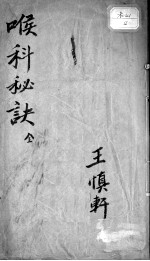 喉科秘訣
王慎軒